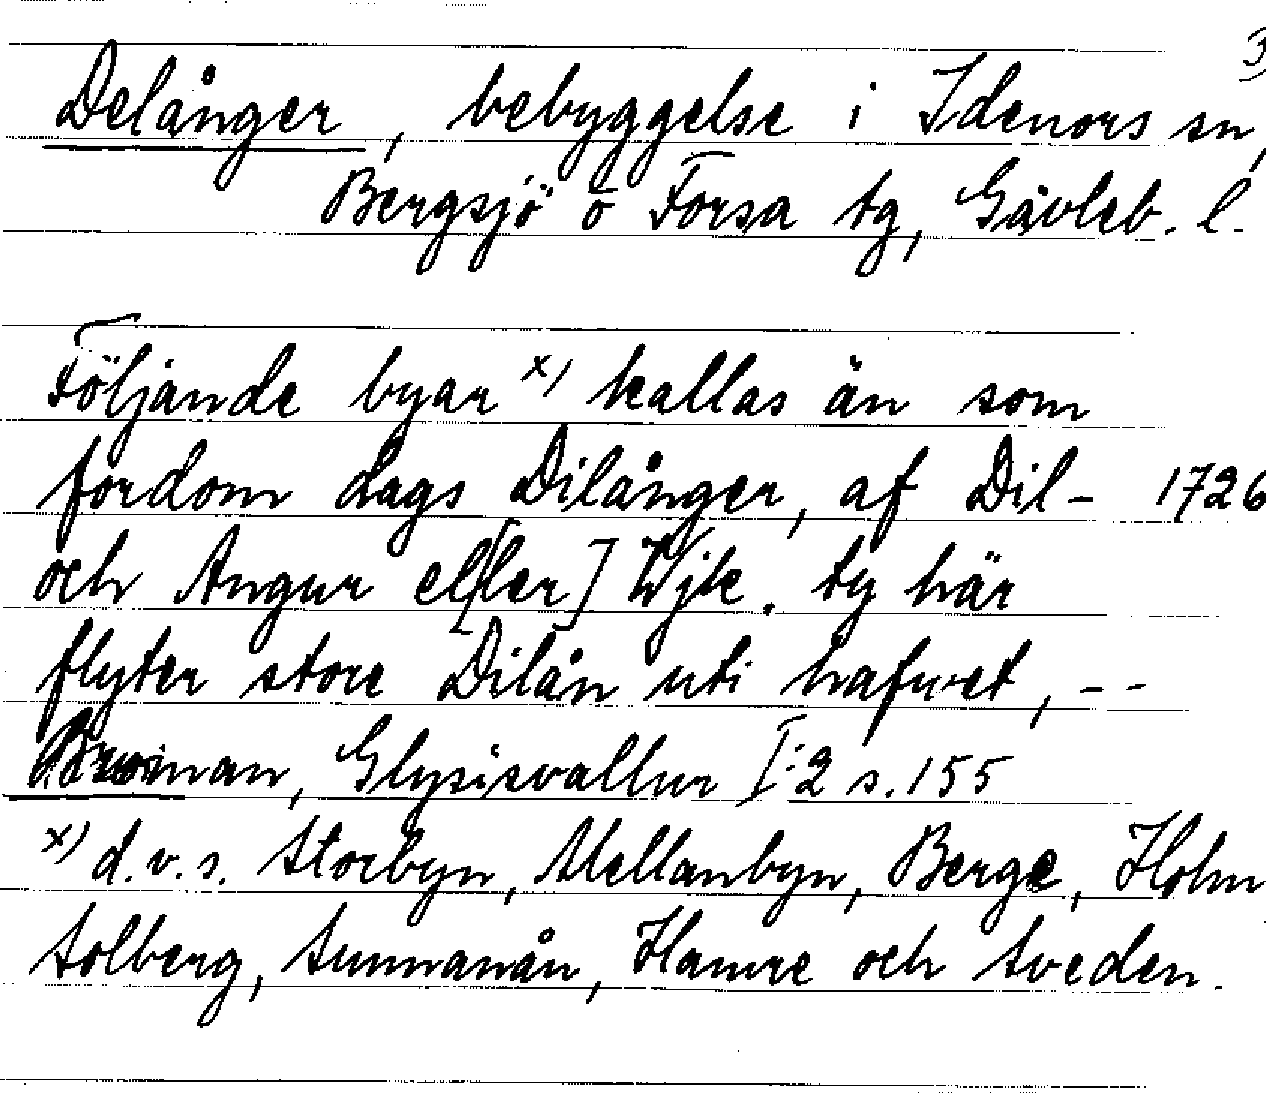 3)
Delånger, bebyggelse i Idenors sn,
Bergsjö o Forsa tg, Gävleb. l.
Följande byar x) kallas än som
fordom dags Dilånger, af Dil- 1726
och Angur el[ler] Wjk. ty här
flyter store Dilån uti hafwet, --
Broman, Glysisvallur I:2 s. 155
x) d.v.s. Storbyn, Mellanbyn, Berge, Holm
Solberg, Sunnanån, Hamre och Sveden.